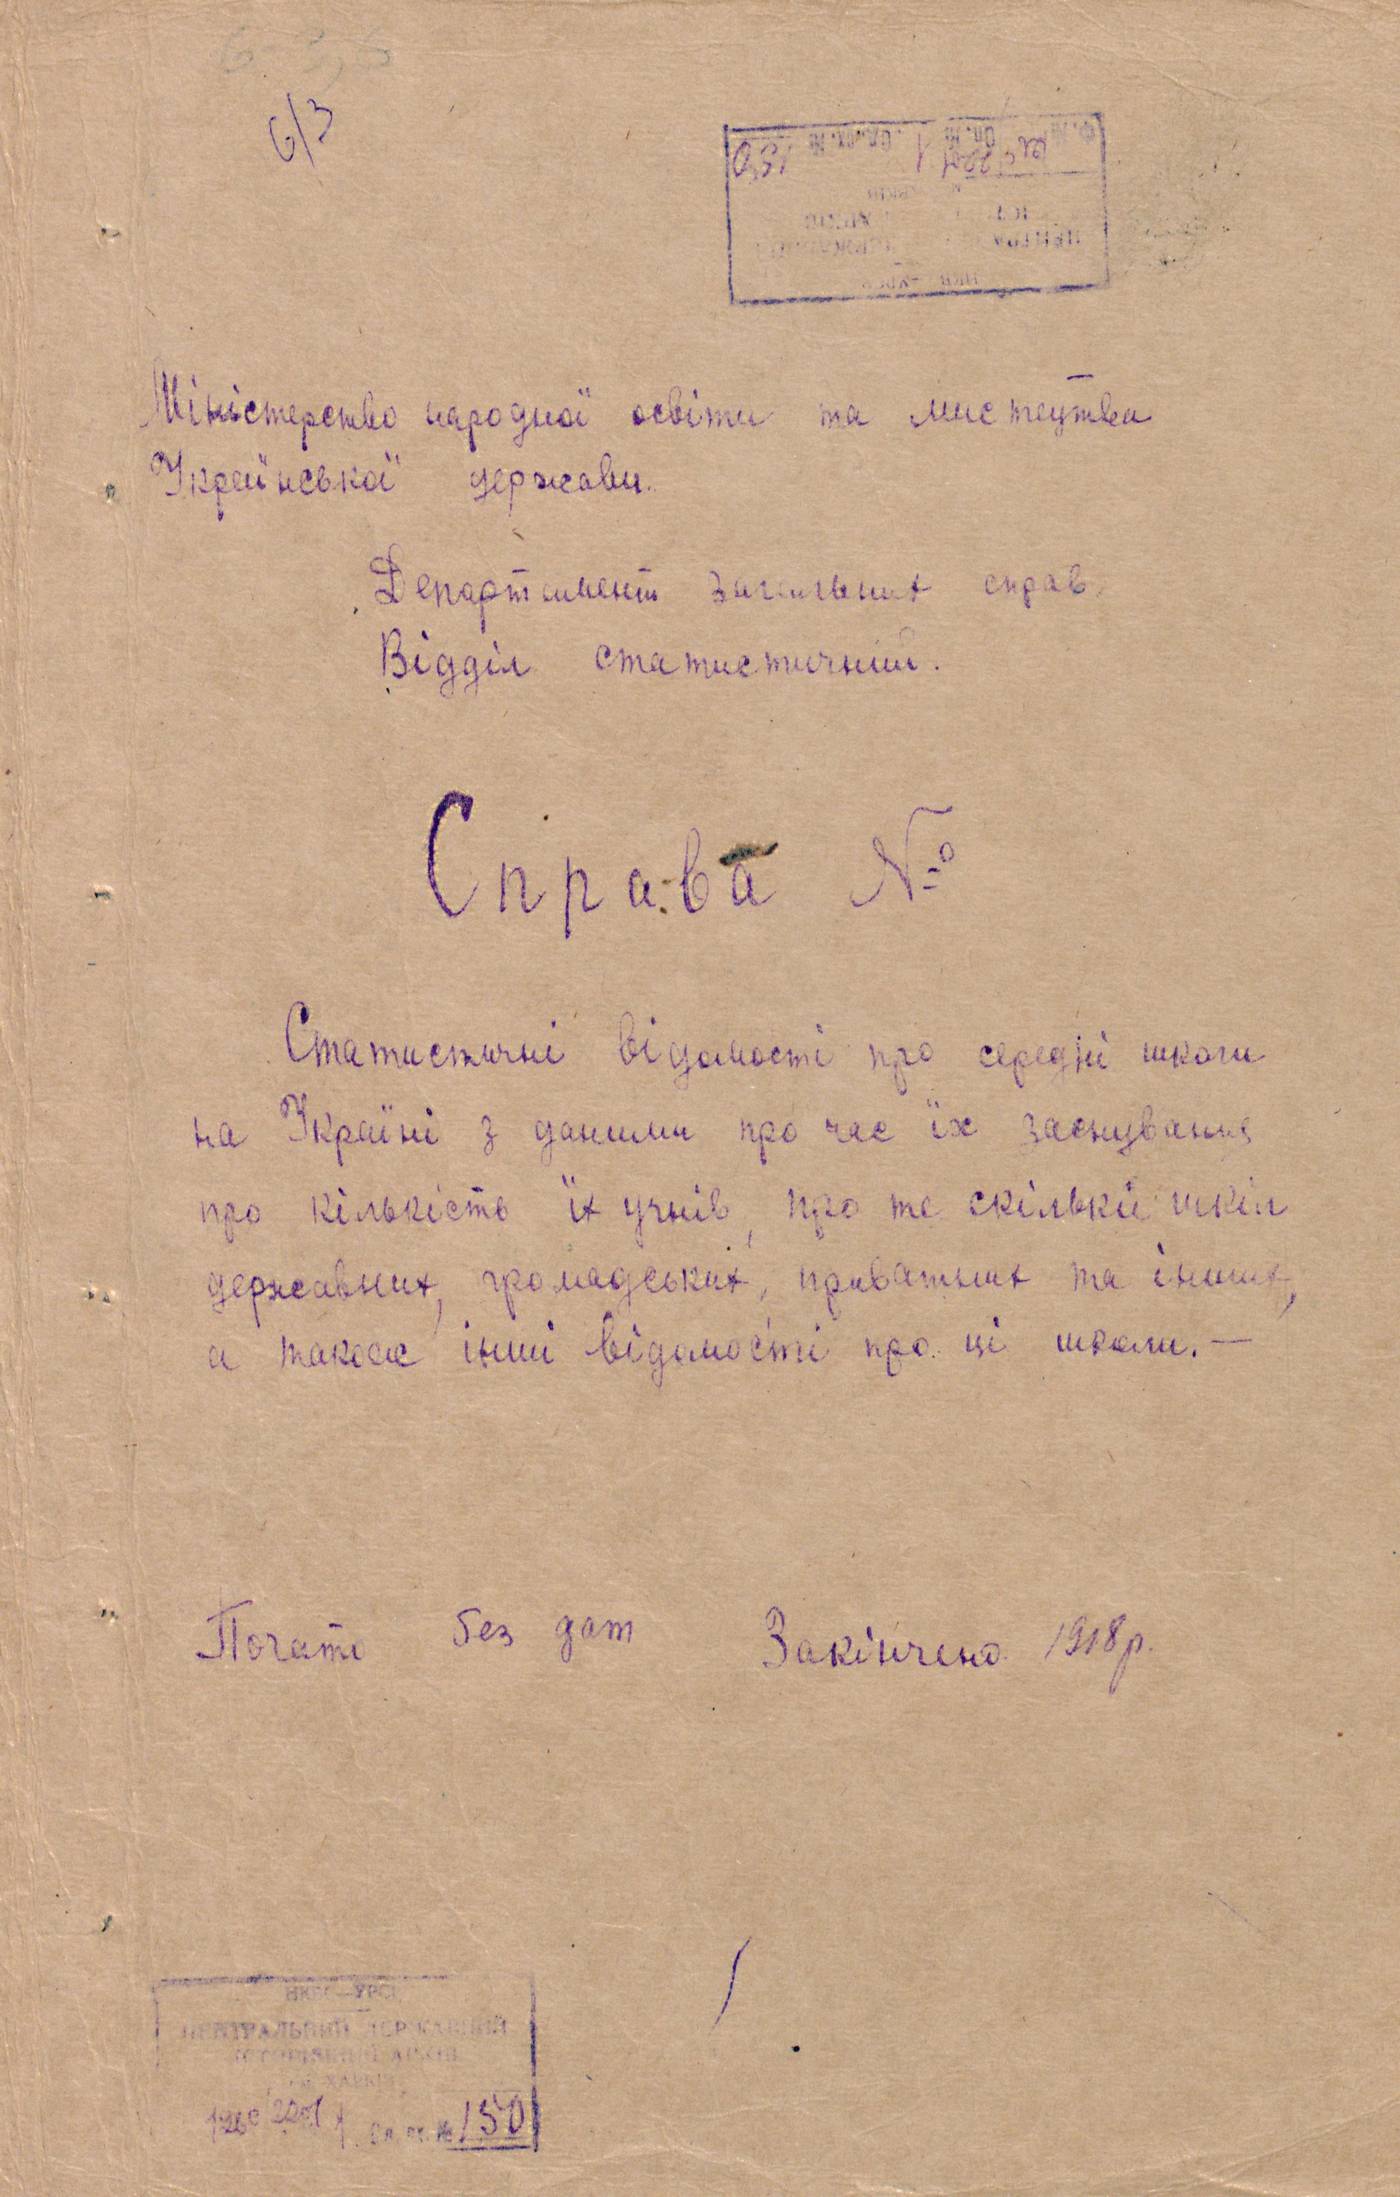 6/3
Міністерство народної освіти та мистецтва
Української держави.
Департамент загальних справ
Відділ статистичний.
Справа №
Статистичні відомості про середні школи
на Україні з даними про час їх заснування
про кількість їх учнів, про те скільки шкіл
державних, громадських, приватних та інших,
а також інші відомості про ці школи. —
Почато без дат Закінчено 1918 р.
НКВС—УРСР
ЦЕНТРАЛЬНИЙ ДЕРЖАВНИЙ
ІСТОРИЧНИЙ АРХІВ
м. ХАРКІВ
2201 1 150